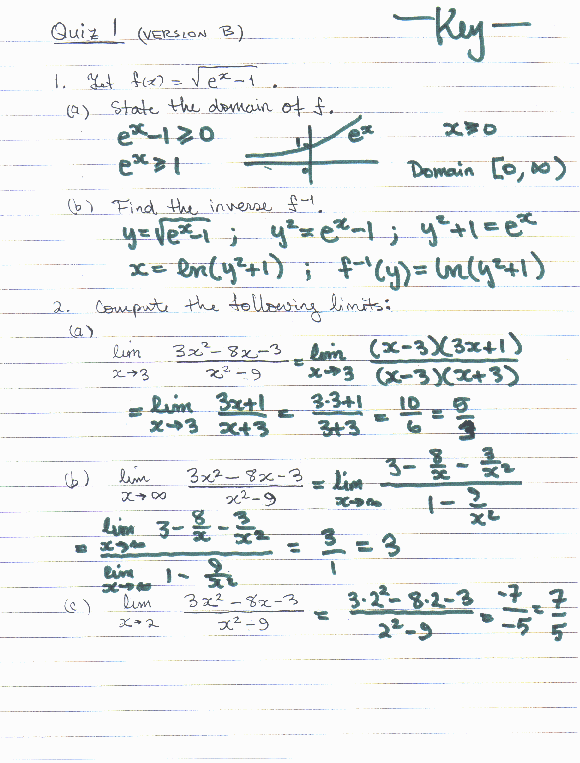 Quiz 1 (VERSION B) — Key —
1. Let f(x) = √(e^x − 1) .
(a) State the domain of f.
e^x − 1 ⩾ 0 1 e^x x ⩾ 0
e^x ⩾ 1 Domain [0, ∞)
(b) Find the inverse f^-1.
y = √(e^x − 1) ; y² = e^x − 1 ; y² + 1 = e^x
x = ln(y² + 1) ; f^-1(y) = ln(y² + 1)
2. Compute the following limits:
(a)
lim x→3 (3x² − 8x − 3)/(x² − 9) = lim x→3 ((x−3)(3x+1))/((x−3)(x+3))
= lim x→3 (3x+1)/(x+3) = (3·3+1)/(3+3) = 10/6 = 5/3
(b) lim x→∞ (3x² − 8x − 3)/(x² − 9) = lim x→∞ (3 − 8/x − 3/x²)/(1 − 9/x²)
= (lim x→∞ 3 − 8/x − 3/x²)/(lim x→∞ 1 − 9/x²) = 3/1 = 3
(c) lim x→2 (3x² − 8x − 3)/(x² − 9) = (3·2² − 8·2 − 3)/(2² − 9) = −7/−5 = 7/5